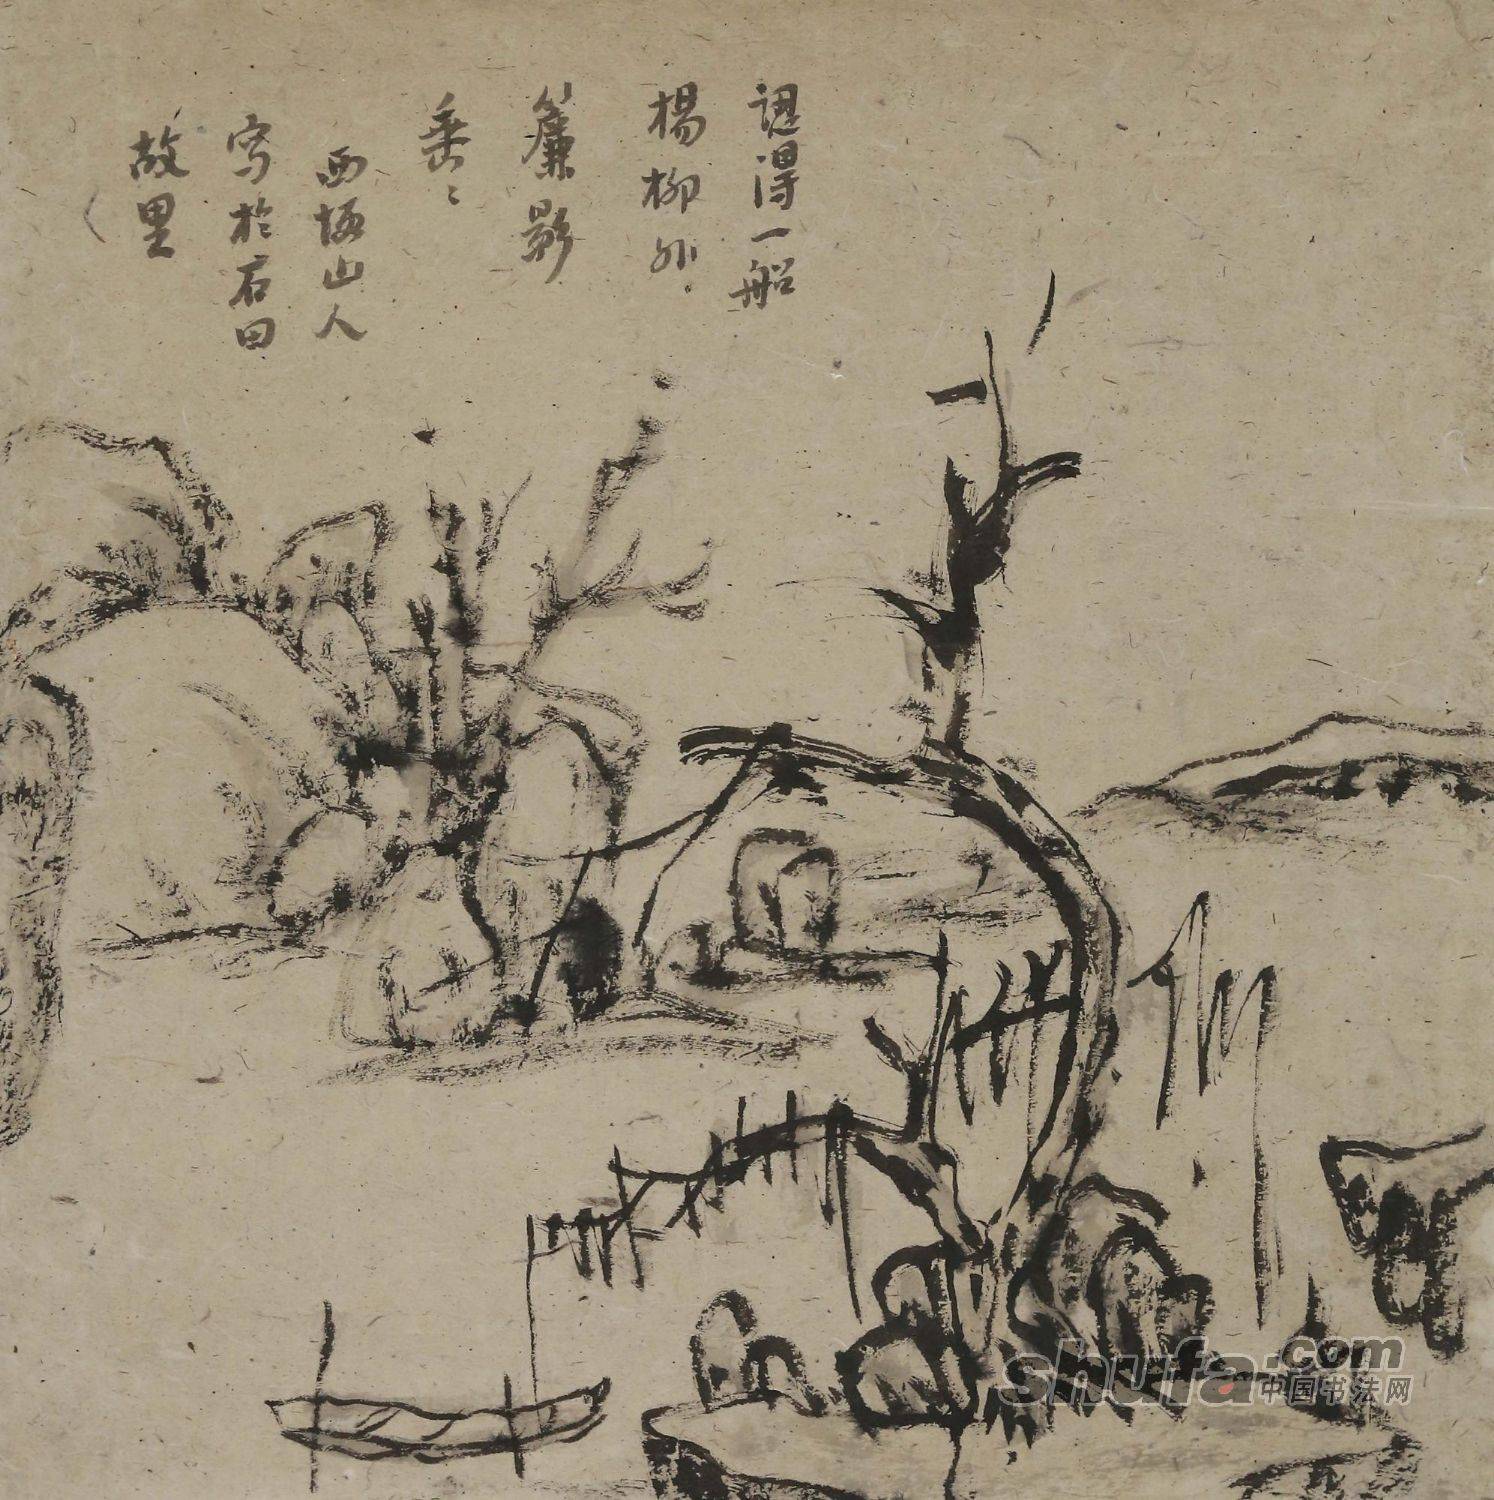 認得一船
楊柳外
簾影
垂〻
西梅山人
寫於石田
故里
shufa.com
中国书法网